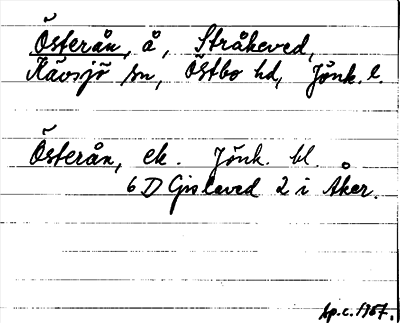 Österån, å, Stråkeved,
Kävsjö sn, Östbo hd, Jönk. l.
Österån, ek. Jönk. bl.
6 D Gislaved 2 i Åker.
sp.c. 1957.